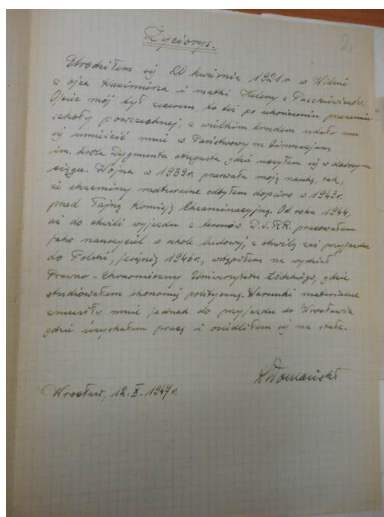 2.
Życiorys.
Urodziłem się 20 kwietnia 1921 r. w Wilnie
z ojca Kazimierza i matki Heleny z
Ojciec mój był to też po ukończeniu przeze mnie
szkoły powszechnej, z wielkim trudem udało mu
się umieścić mnie w Państwowym Gimnazjum
im. króla Zygmunta Augusta gdzie uczyłem się w dalszym
ciągu. Wojna w 1939 r. przerwała moją naukę, tak,
że egzaminy maturalne odbyłem dopiero w 1943 r.
przed Tajną Komisją Egzaminacyjną. Od roku 1944.
aż do chwili wyjazdu z terenów Z.S.R.R. pracowałem
jako nauczyciel w szkole ludowej, z chwilą zaś przyjazdu
do Polski, jesienią 1946 r., wstąpiłem na wydział
Prawno-Ekonomiczny Uniwersytetu Łódzkiego, gdzie
studiowałem ekonomię polityczną. Warunki materialne
zmusiły mnie jednak do przyjazdu do Wrocławia
gdzie uzyskałem pracę i osiedliłem się na stałe.
Domański
Wrocław, 12.X.1947 r.